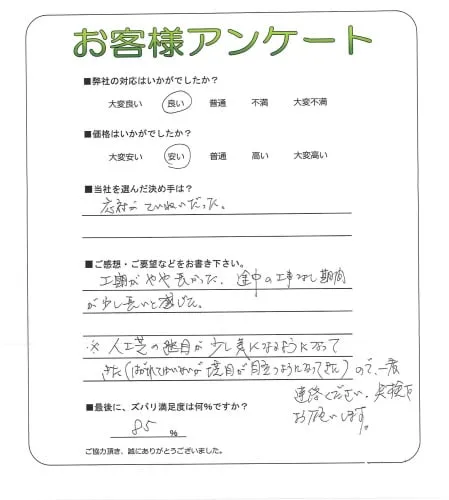 お客様アンケート
■弊社の対応はいかがでしたか?
大変良い 良い 普通 不満 大変不満
■価格はいかがでしたか?
大変安い 安い 普通 高い 大変高い
■当社を選んだ決め手は?
応対がていねいだった。
■ご感想・ご要望などをお書き下さい。
工期がやや長かった。途中の工事なし期間
が少し長いと感じた。
※人工芝の継目が少し気になるようになって
きた(はがれてはいないが境目が目立つようになってきた)ので、一度
連絡ください。点検を
お願いします。
■最後に、ズバリ満足度は何%ですか?
85 %
ご協力頂き、誠にありがとうございました。